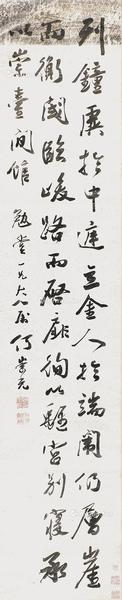 列鐘虡於中庭立金人於端闈仍層崖
而衡閾臨峻路而啓扉徇以離宮別寢承
以崇臺閒館
勉堂一兄大人屬 何